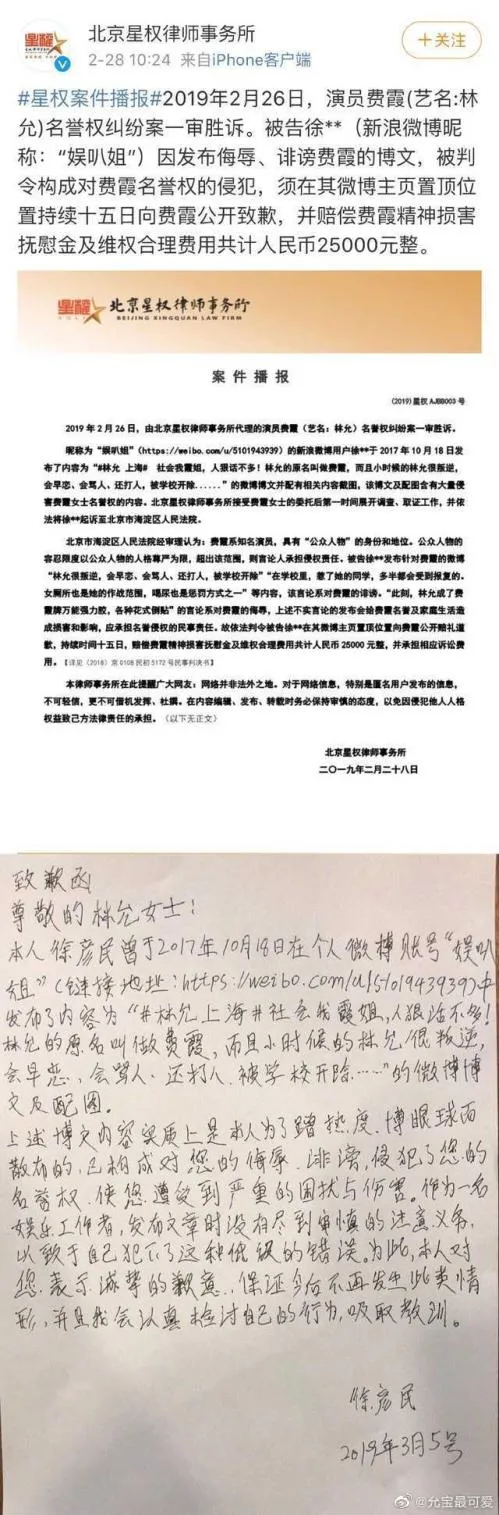 星权
北京星权律师事务所
2-28 10:24 来自iPhone客户端
+关注
#星权案件播报#2019年2月26日，演员费霞(艺名:林
允)名誉权纠纷案一审胜诉。被告徐**（新浪微博昵
称：“娱叭姐”）因发布侮辱、诽谤费霞的博文，被判
令构成对费霞名誉权的侵犯，须在其微博主页置顶位
置持续十五日向费霞公开致歉，并赔偿费霞精神损害
抚慰金及维权合理费用共计人民币25000元整。
星權 北京星权律师事务所
BEIJING XINGQUAN LAW FIRM
案 件 播 报
(2019)星权 AJBB003 号
2019 年 2 月 26 日，由北京星权律师事务所代理的演员费霞（艺名：林允）名誉权纠纷案一审胜诉。
昵称为“娱叭姐”(https://weibo.com/u/5101943939)的新浪微博用户徐**于 2017 年 10 月 18 日发
布了内容为“#林允 上海# 社会我霞姐，人狠话不多！林允的原名叫做费霞，而且小时候的林允很叛逆，
会早恋、会骂人、还打人，被学校开除......”的微博博文并配有相关内容截图，该博文及配图含有大量侵
害费霞女士名誉权的内容。北京星权律师事务所接受费霞女士的委托后第一时间展开调查、取证工作，并依
法将徐**起诉至北京市海淀区人民法院。
北京市海淀区人民法院经审理认为：费霞系知名演员，具有“公众人物”的身份和地位。公众人物的
容忍限度以公众人物的人格尊严为限，超出该范围，则言论人承担侵权责任。被告徐**发布针对费霞的微博
“林允很叛逆，会早恋、会骂人、还打人，被学校开除”“在学校里，惹了她的同学，多半都会受到报复的。
女厕所也是她的作战范围，喝尿也是惩罚方式之一”等内容，该言论系对费霞的诽谤。“此刻，林允成了费
霞牌万能强力胶，各种花式倒贴”的言论系对费霞的侮辱，上述不实言论的发布会给费霞名誉及家庭生活造
成损害和影响，应承担名誉侵权的民事责任。故依法判令被告徐**在其微博主页置顶位置向费霞公开赔礼道
歉，持续时间十五日，赔偿费霞精神损害抚慰金及维权合理费用共计人民币 25000 元整，并承担相应诉讼费
用。【详见（2018）京 0108 民初 5172 号民事判决书】
本律师事务所在此提醒广大网友：网络并非法外之地。对于网络信息，特别是匿名用户发布的信息，
不可轻信，更不可借机发挥、杜撰。在内容编辑、发布、转载时务必保持审慎的态度，以免因侵犯他人人格
权益致己方法律责任的承担。（以下无正文）
北京星权律师事务所
二〇一九年二月二十八日
致歉函
尊敬的林允女士：
本人徐彦民曾于2017年10月18日在个人微博账号“娱叭
姐”（链接地址：https://weibo.com/u/5101943939）中
发布了内容为“#林允上海#社会我霞姐，人狠话不多！
林允的原名叫做费霞，而且小时候的林允很叛逆，
会早恋、会骂人、还打人、被学校开除……”的微博博
文及配图。
上述博文内容实质上是本人为了蹭热度、博眼球而
散布的，已构成对您的侮辱、诽谤，侵犯了您的
名誉权，使您遭受到严重的困扰与伤害。作为一名
娱乐工作者，发布文章时没有尽到审慎的注意义务，
以致于自己犯下了这种低级的错误。为此，本人对
您表示诚挚的歉意，保证今后不再发生此类情
形，并且我会认真检讨自己的行为，吸取教训。
徐彦民
2019年3月5号
@允宝最可爱